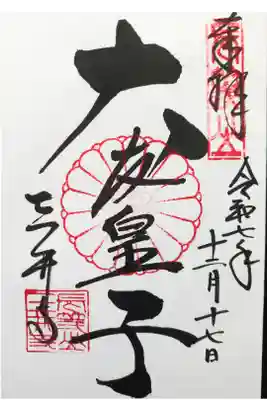 奉拝
令和七年
十二月十七日
大友皇子
三井寺